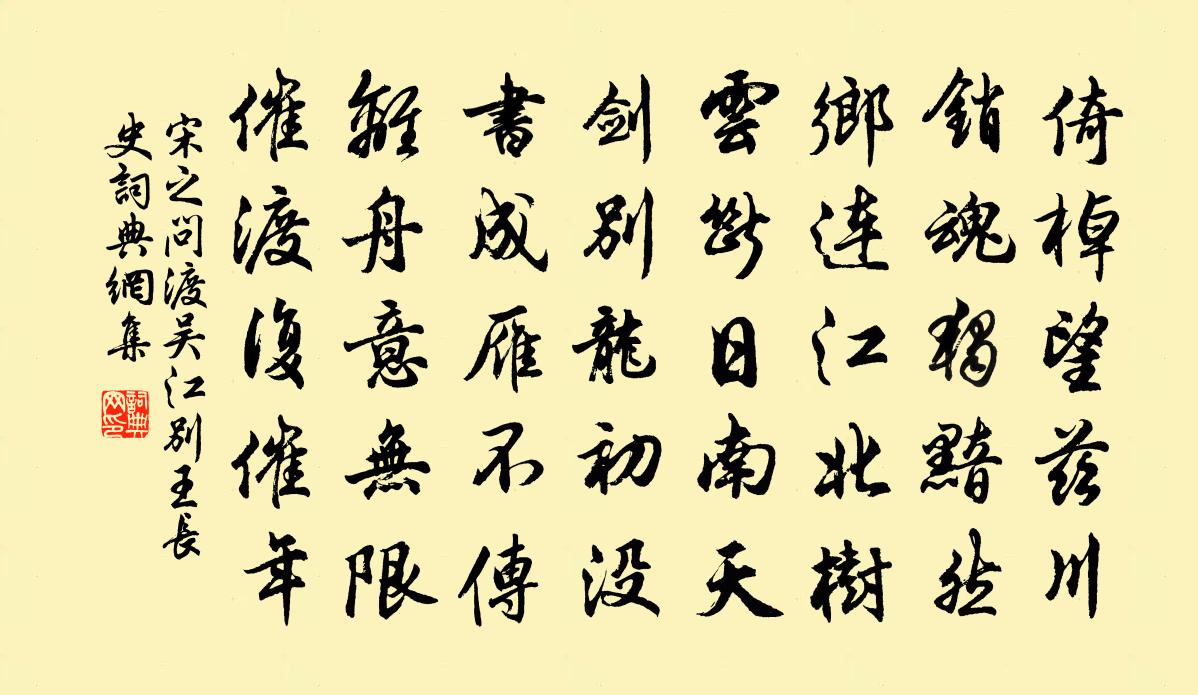 倚棹望茲川
銷魂獨黯然
鄉連江北樹
雲斷日南天
劍別龍初沒
書成雁不傳
離舟意無限
催渡復催年
宋之問渡吴江別王長
史詞典網集
詞典
网印